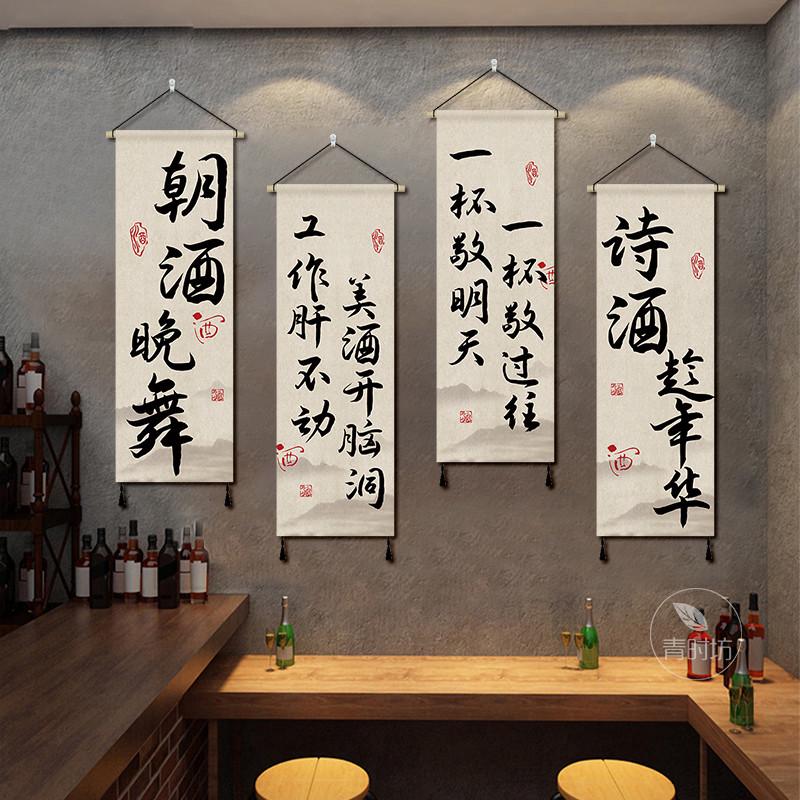 朝酒晚舞
酒
工作肝不动
美酒开脑洞
酒
一杯敬明天
一杯敬过往
酒
诗酒趁年华
酒
青时坊